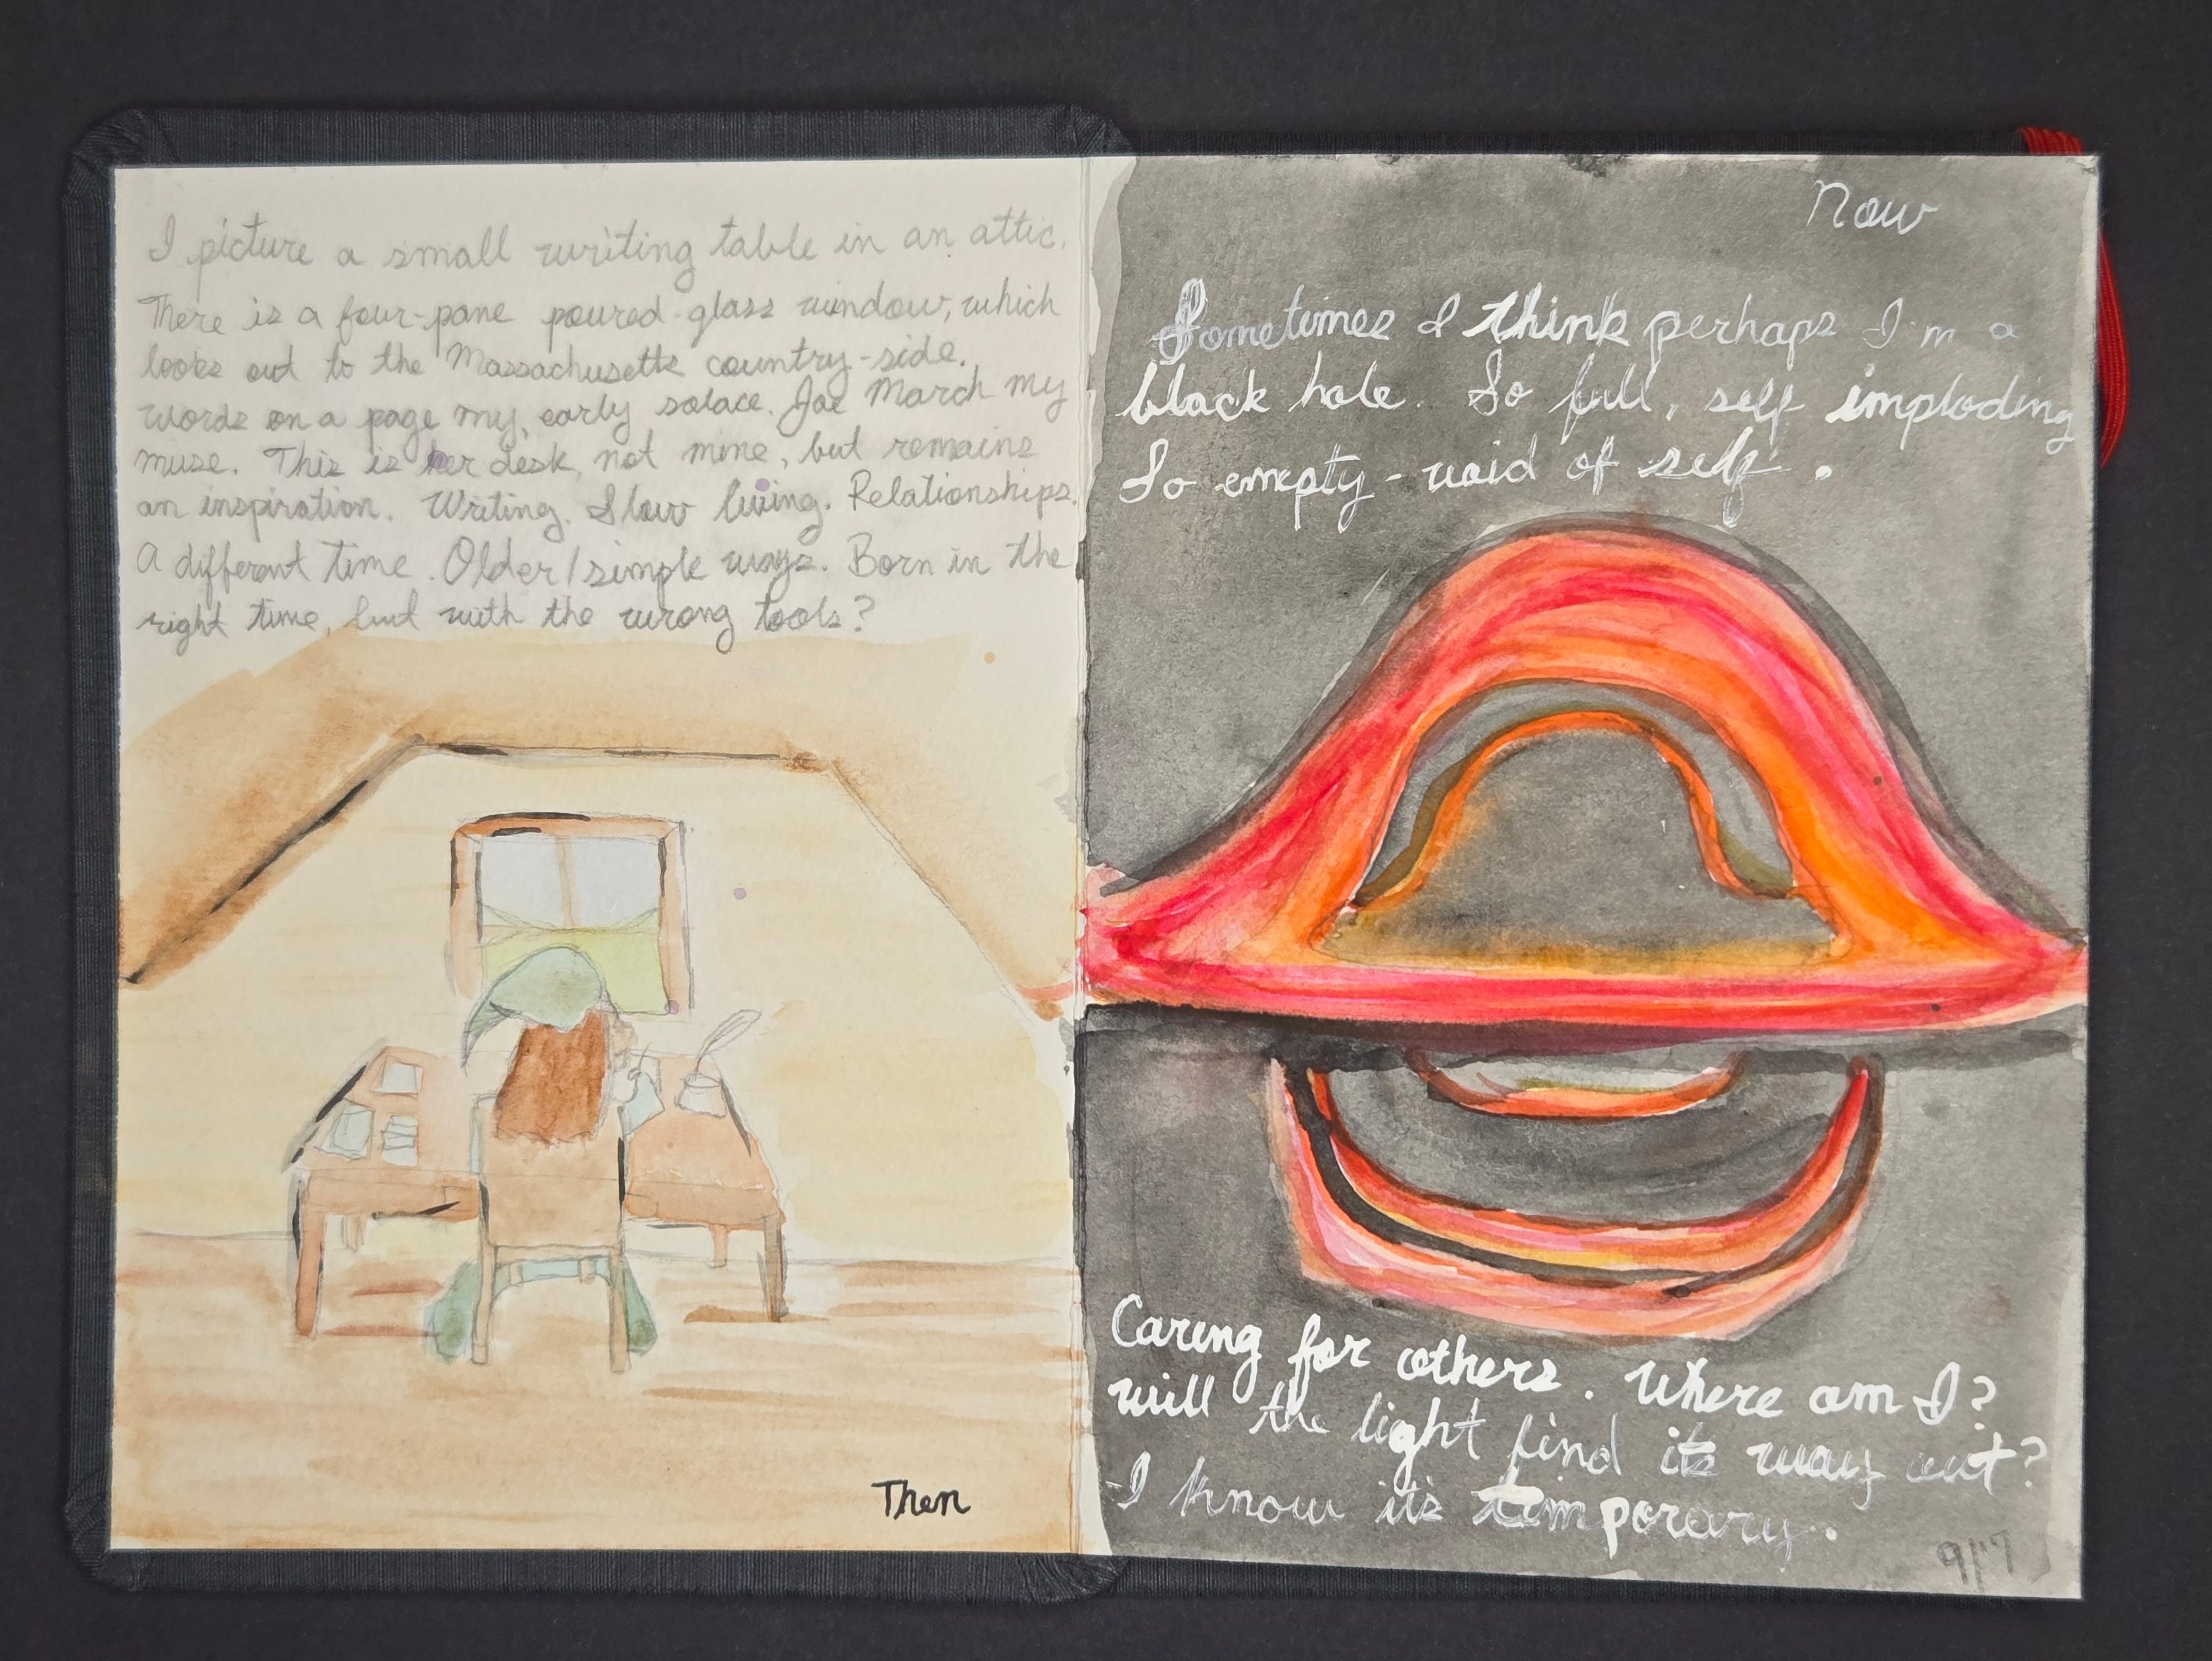 I picture a small writing table in an attic.
There is a four-pane poured-glass window, which
looks out to the Massachusetts country-side.
Words on a page my early solace. Joe March my
muse. This is her desk, not mine, but remains
an inspiration. Writing. Slow living. Relationships.
A different time. Older/simple ways. Born in the
right time, but with the wrong tools?
Then
Now
Sometimes I think perhaps I'm a
black hole. So full, self imploding
So empty - void of self.
Caring for others. Where am I?
Will the light find its way out?
I know its temporary.
9/17